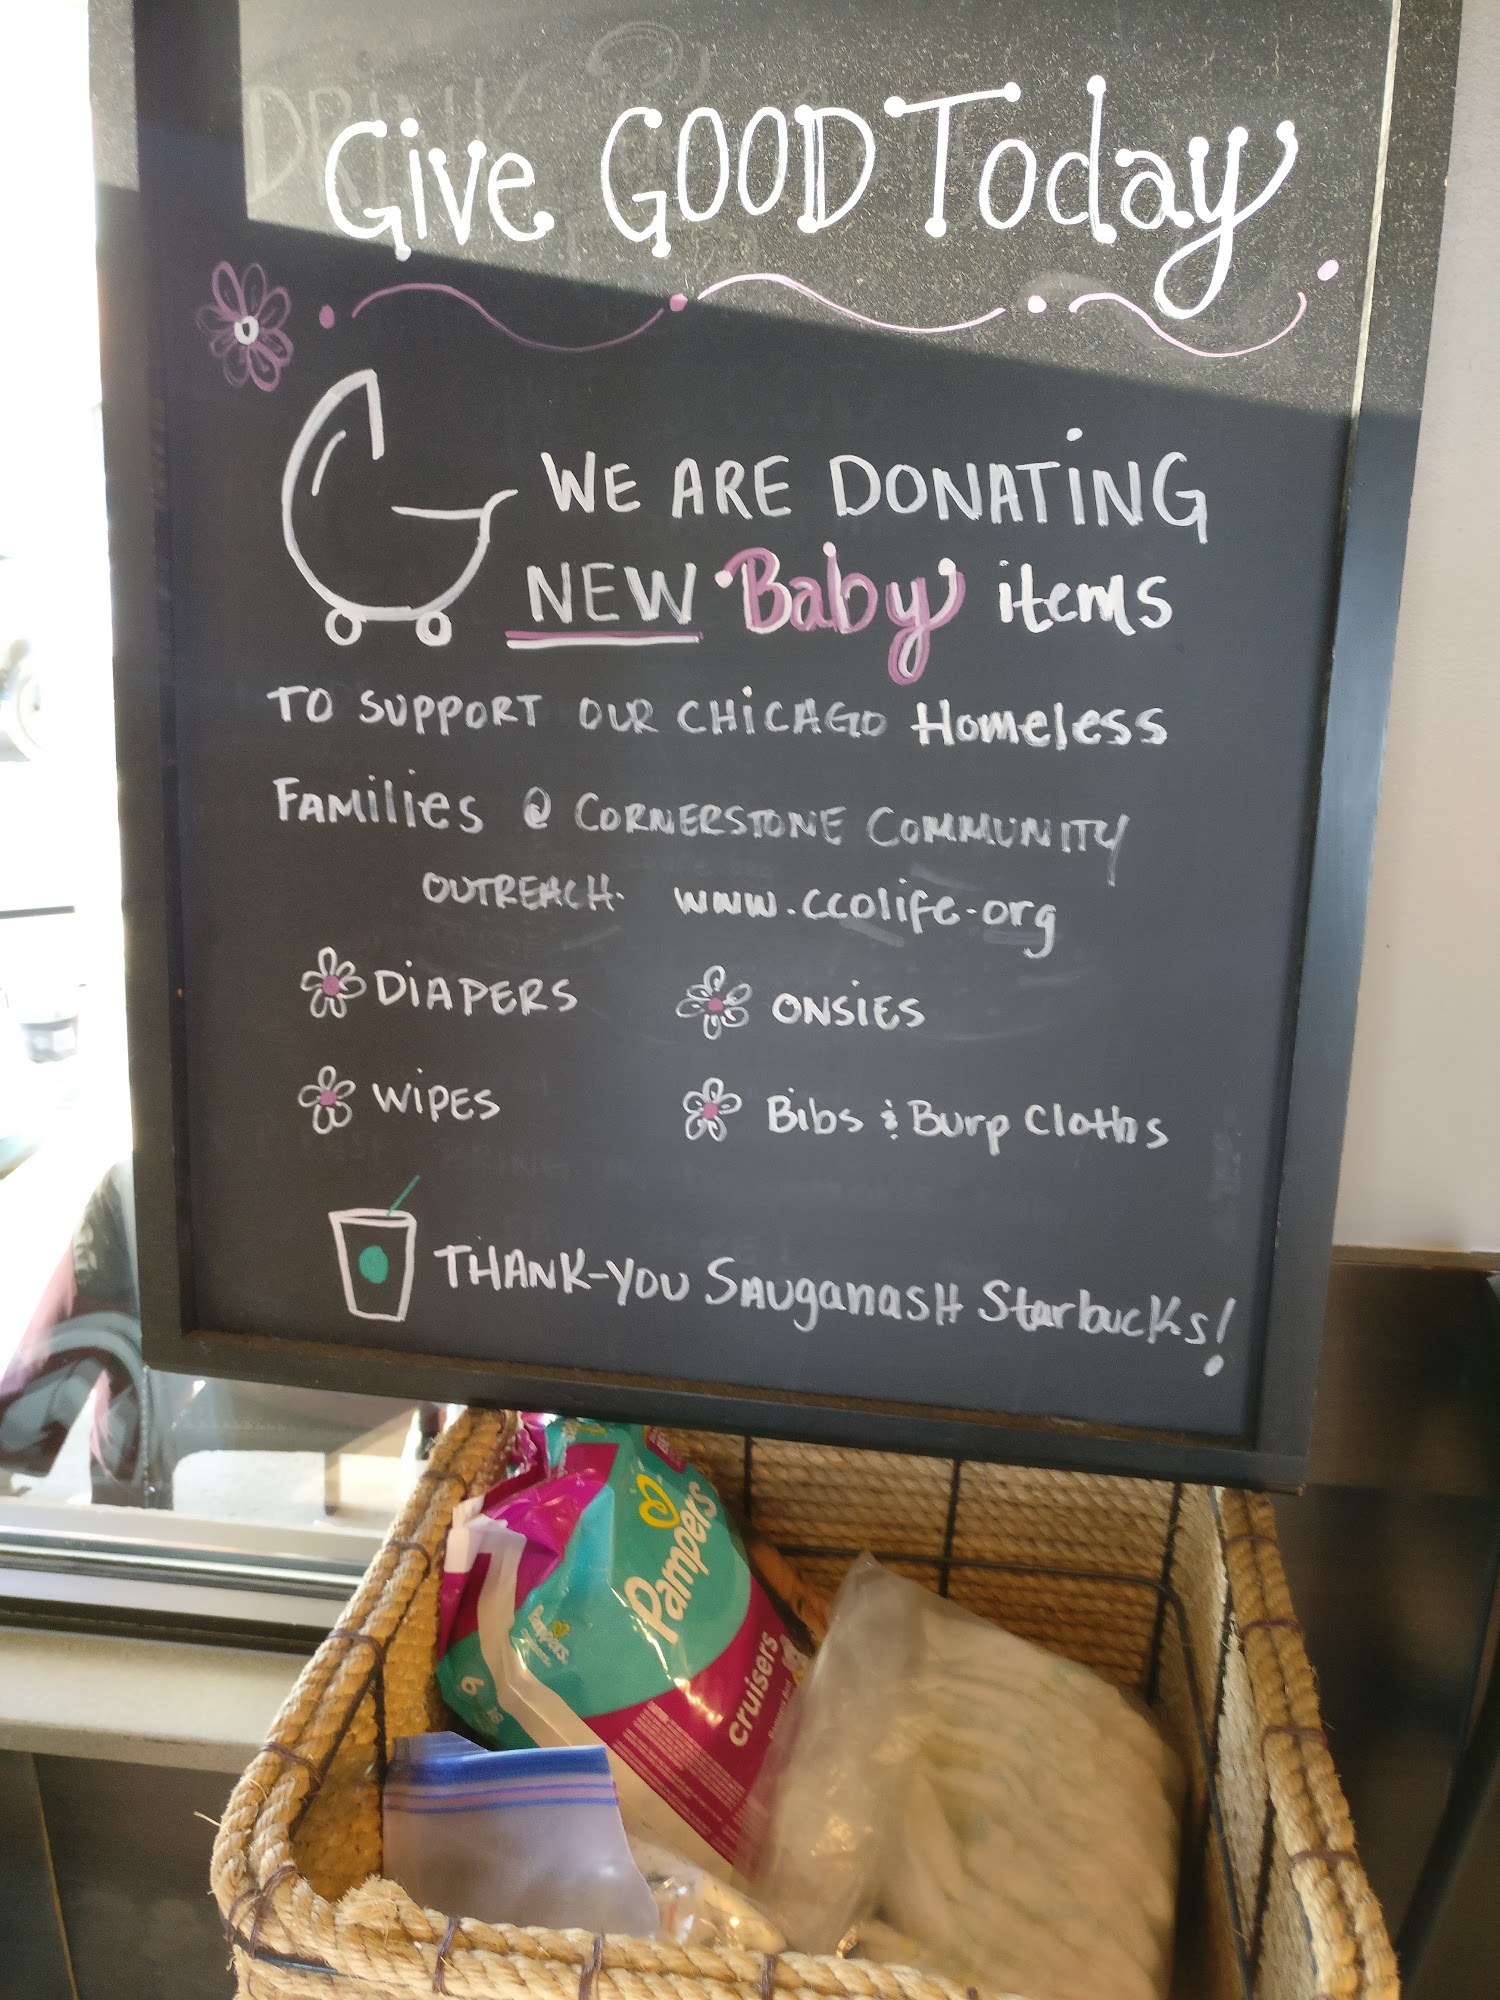 Give GOOD Today
WE ARE DONATING
NEW Baby items
TO SUPPORT OUR CHICAGO Homeless
FAMILIES @ CORNERSTONE COMMUNITY
OUTREACH. www.ccolife.org
DIAPERS ONSIES
WIPES Bibs & Burp Cloths
THANK-YOU SAUganASH Starbucks!
Pampers
Pampers
cruisers
6